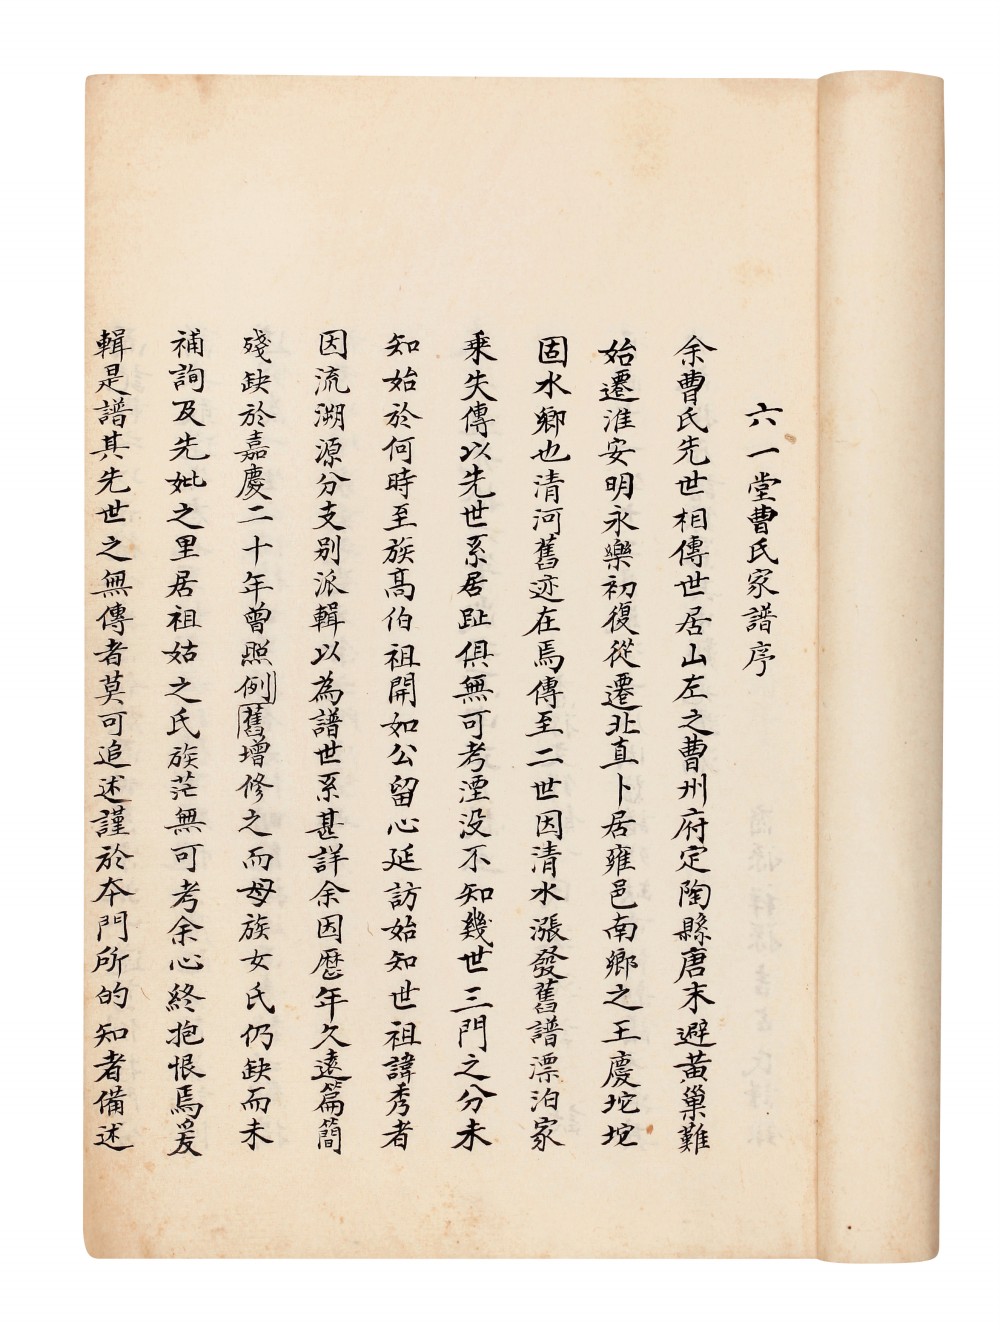 六一堂曹氏家譜序
余曹氏先世相傳世居山左之曹州府定陶縣唐末避黃巢難
始遷淮安明永樂初復從遷北直卜居雍邑南鄉之王慶坨坨
固水鄉也清河舊迹在焉傳至二世因清水漲發舊譜漂泊家
乘失傳以先世系居趾俱無可考湮没不知幾世三門之分未
知始於何時至族高伯祖開如公留心延訪始知世祖諱秀者
因流溯源分支别派輯以為譜世系甚詳余因歷年久遠篇簡
殘缺於嘉慶二十年曾照例舊增修之而母族女氏仍缺而未
補詢及先妣之里居祖姑之氏族茫無可考余心終抱恨焉爰
輯是譜其先世之無傳者莫可追述謹於本門所的知者備述